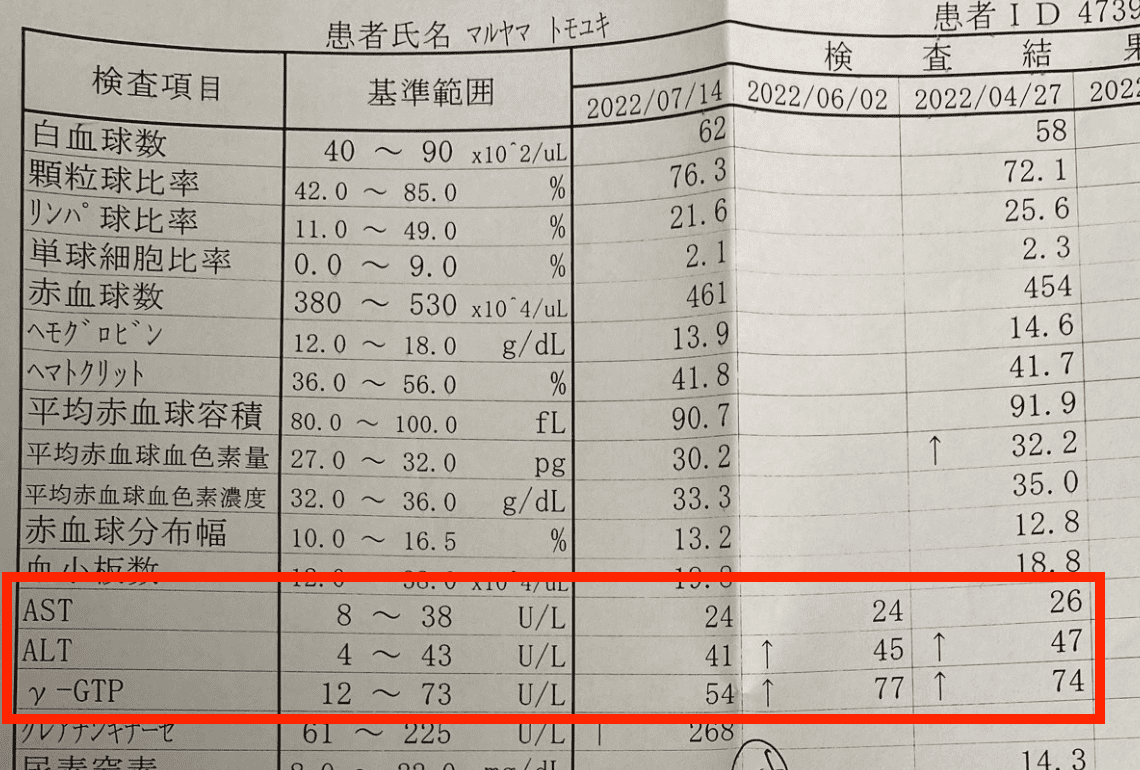 患者氏名 マルヤマ トモユキ 患者ID 4739
検査項目 基準範囲 検査結果
2022/07/14 2022/06/02 2022/04/27 2022
白血球数 40 ~ 90 x10^2/uL 62 58
顆粒球比率 42.0 ~ 85.0 % 76.3 72.1
リンパ球比率 11.0 ~ 49.0 % 21.6 25.6
単球細胞比率 0.0 ~ 9.0 % 2.1 2.3
赤血球数 380 ~ 530 x10^4/uL 461 454
ヘモグロビン 12.0 ~ 18.0 g/dL 13.9 14.6
ヘマトクリット 36.0 ~ 56.0 % 41.8 41.7
平均赤血球容積 80.0 ~ 100.0 fL 90.7 91.9
平均赤血球血色素量 27.0 ~ 32.0 pg 30.2 ↑ 32.2
平均赤血球血色素濃度 32.0 ~ 36.0 g/dL 33.3 35.0
赤血球分布幅 10.0 ~ 16.5 % 13.2 12.8
血小板数 x10^4/uL 18.8
AST 8 ~ 38 U/L 24 24 26
ALT 4 ~ 43 U/L 41 ↑ 45 ↑ 47
γ-GTP 12 ~ 73 U/L 54 ↑ 77 ↑ 74
クレアチンキナーゼ 61 ~ 225 U/L ↑ 268
尿素窒素 mg/dL 14.3